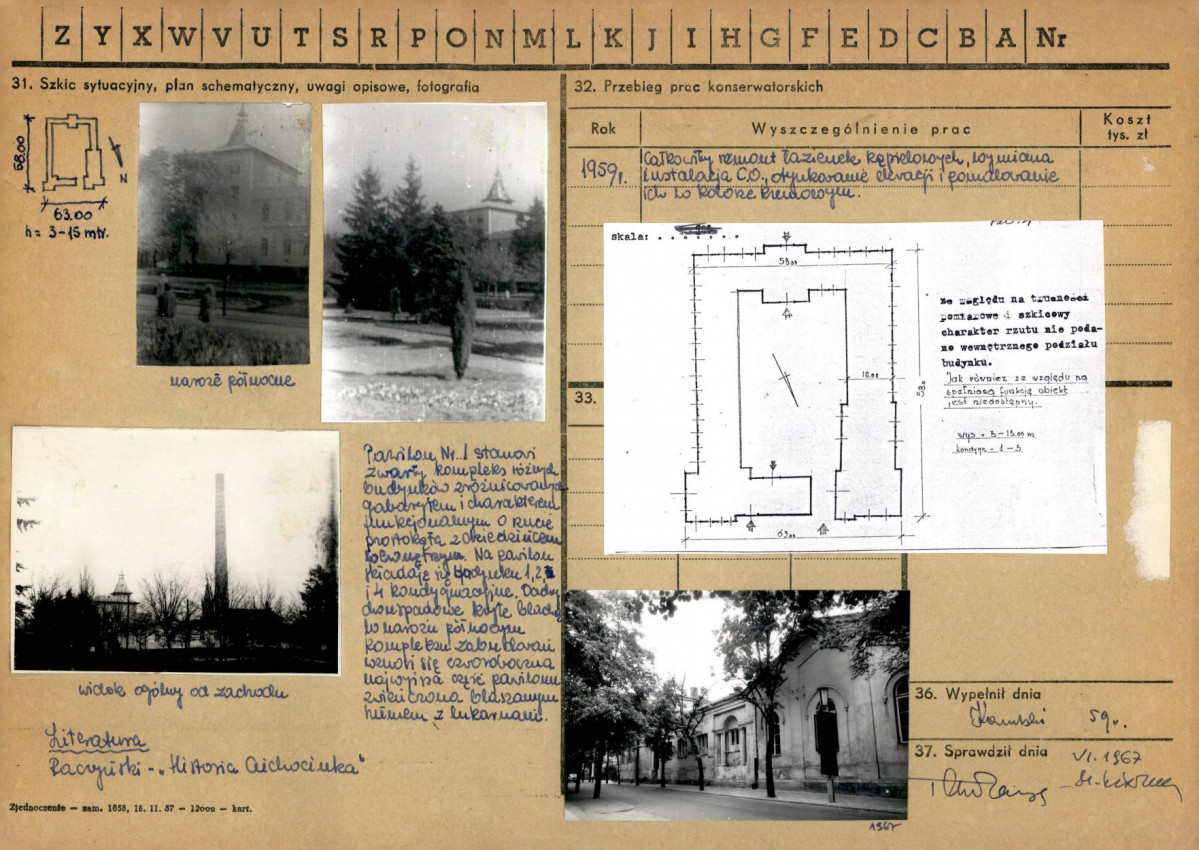 Z Y X W V U T S R P O N M L K J I H G F E D C B A Nr
31. Szkic sytuacyjny, plan schematyczny, uwagi opisowe, fotografia
58.00
N
63.00
h = 3-15 mtr.
naroże północne
widok ogólny od zachodu
Pawilon Nr. 1 stanowi
zwarty kompleks różnych
budynków zróżnicowanych
gabarytem i charakterem
funkcjonalnym o rzucie
prostokąta z dziedzińcem
wewnętrznym. Na pawilon
składają się budynki 1, 2, 3
i 4 kondygnacyjne. Dachy
dwuspadowe kryte blachą
W narożu północnym
kompleksu zabudowań
wznosi się czworoboczna
najwyższa część pawilonu
zwieńczona blaszanym
hełmem z lukarnami.
Literatura
Raczyński - „Historia Ciechocinka"
Zjednoczenie — zam. 1858, 18. 11. 57 — 12000 — kart.
32. Przebieg prac konserwatorskich
Rok
Wyszczególnienie prac
Koszt
tys. zł
1959 r.
Całkowity remont łazienek kąpielowych, wymiana
instalacja C.O., otynkowanie elewacji i pomalowanie
ich w kolorze kremowym.
skala:
58.00
10.00
58.00
63.00
Ze względu na trudności
pomiarowe i szkicowy
charakter rzutu nie poda-
no wewnętrznego podziału
budynku.
Jak również ze względu na
spełnioną funkcję obiekt
jest niedostępny.
wys = 3-15.00 m
kondygn - 1-3
33.
1967
36. Wypełnił dnia
59 r.
37. Sprawdził dnia
VI. 1967